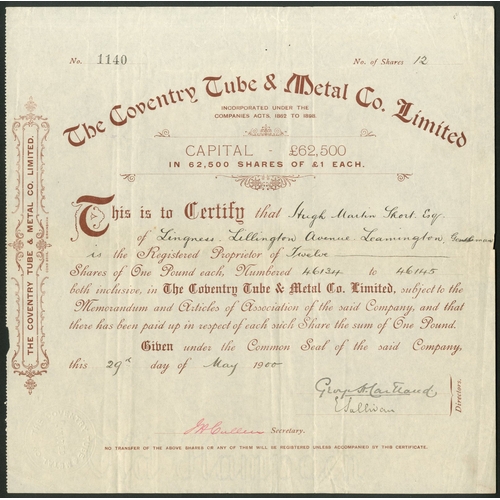 No. 1140
No. of Shares 12
The Coventry Tube & Metal Co. Limited
INCORPORATED UNDER THE
COMPANIES ACTS, 1862 TO 1898.
CAPITAL - £62,500
IN 62,500 SHARES OF £1 EACH.
THE COVENTRY TUBE & METAL CO. LIMITED.
This is to Certify that Hugh Martin Short Esq.
of Lingness. Lillington Avenue. Leamington, Gentleman
is the Registered Proprietor of Twelve
Shares of One Pound each, Numbered 46134 to 46145
both inclusive, in The Coventry Tube & Metal Co. Limited, subject to the
Memorandum and Articles of Association of the said Company, and that
there has been paid up in respect of each such Share the sum of One Pound.
Given under the Common Seal of the said Company,
this 29th day of May 1900
E Sullivan
Directors.
Secretary.
NO TRANSFER OF THE ABOVE SHARES OR ANY OF THEM WILL BE REGISTERED UNLESS ACCOMPANIED BY THIS CERTIFICATE.